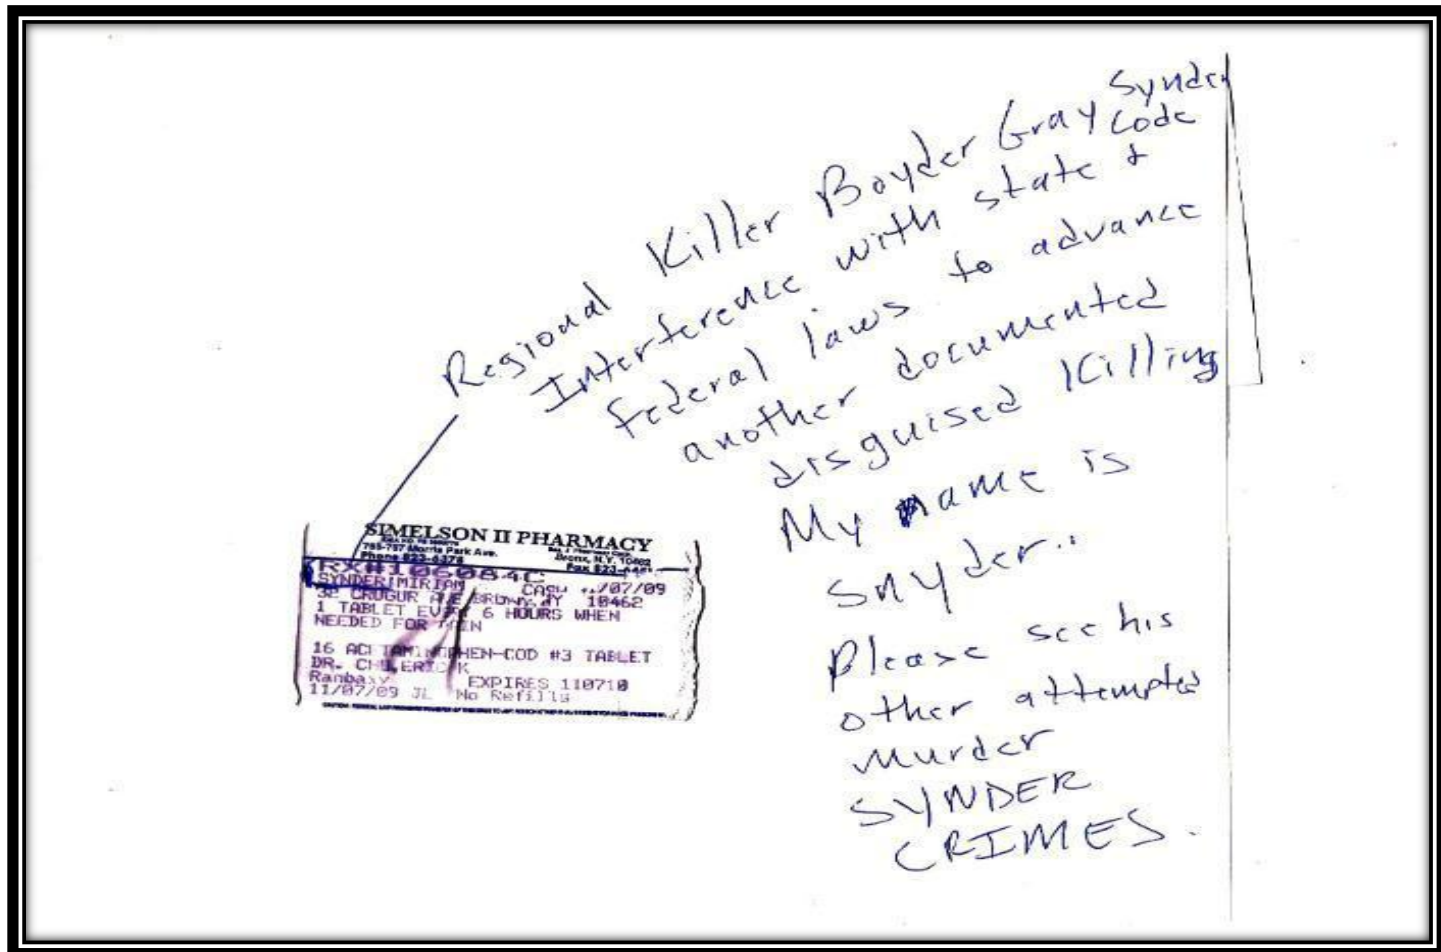 Regional Killer Boyder Gray Synder
Code
Interference with state &
federal laws to advance
another documented
disguised Killing
My name is
snyder..
Please see his
other attempted
murder
SYNDER
CRIMES.
SIMELSON II PHARMACY
Morris Park Ave. Bronx, N.Y.
Phone 823-
RX#106084C
SYNDER, MIRIAM CASH /07/09
CRUGUR 10462
1 TABLET 6 HOURS WHEN
NEEDED FOR
16 TABLET
DR.
Ranbaxy EXPIRES 110710
11/07/09 JL No Refills